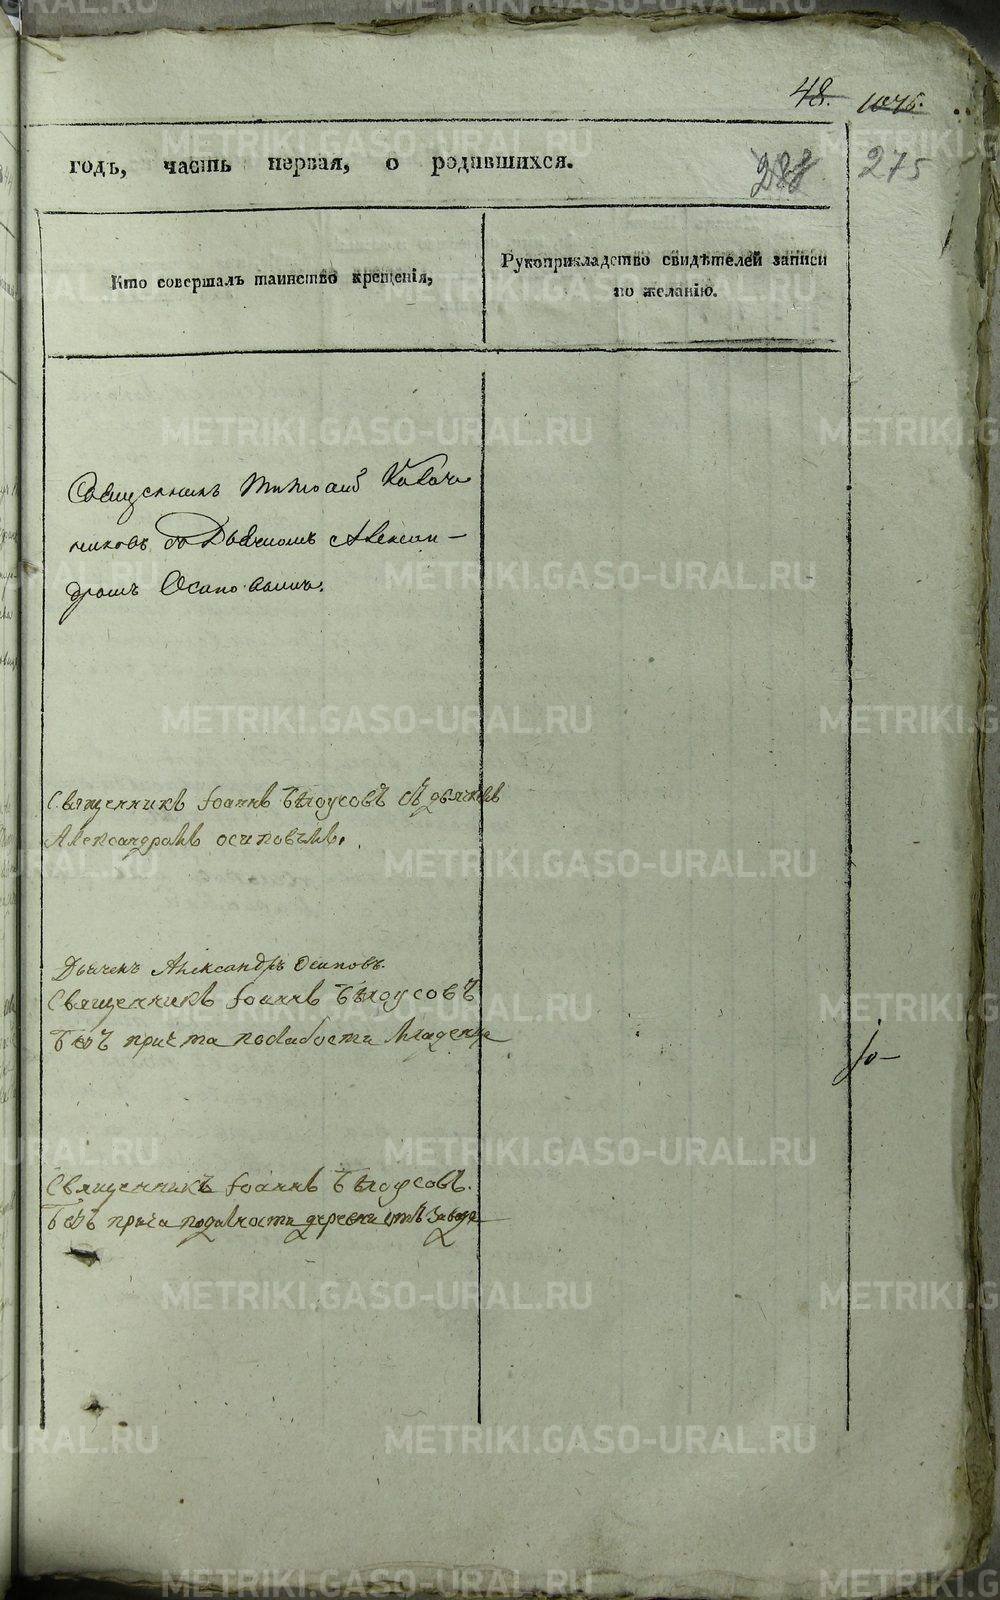 48. 1046.
годъ, часть первая, о родившихся. 288 275
Кто совершалъ таинство крещенія,
Рукоприкладство свидѣтелей записи
по желанію.
Священникъ
съ Дьячкомъ Алексан-
дромъ Осиповымъ.
Священникъ Іоаннъ Бѣлоусовъ съ дьячкомъ
Александромъ осиповымъ.
Дьячекъ Александръ Осиповъ.
Священникъ Іоаннъ Бѣлоусовъ
безъ причта послабости Младенца
10-
Священникъ Іоаннъ Бѣлоусовъ.
Безъ прича подальности деревни отъ Завода
METRIKI.GASO-URAL.RU